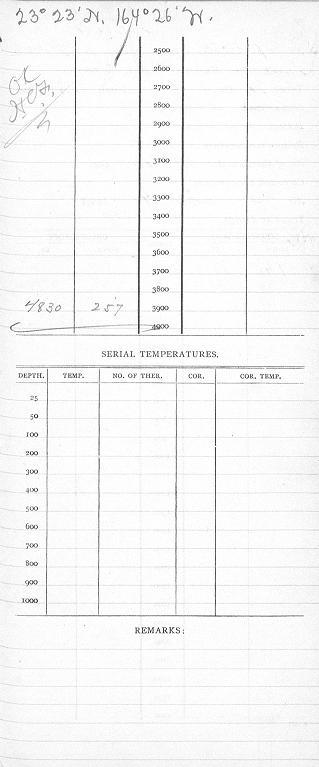 23° 23' N. 164° 26' W.
OK
2500
2600
2700
2800
2900
3000
3100
3200
3300
3400
3500
3600
3700
3800
4830 257 3900
4000
SERIAL TEMPERATURES.
DEPTH. TEMP. NO. OF THER. COR. COR. TEMP.
25
50
100
200
300
400
500
600
700
800
900
1000
REMARKS: